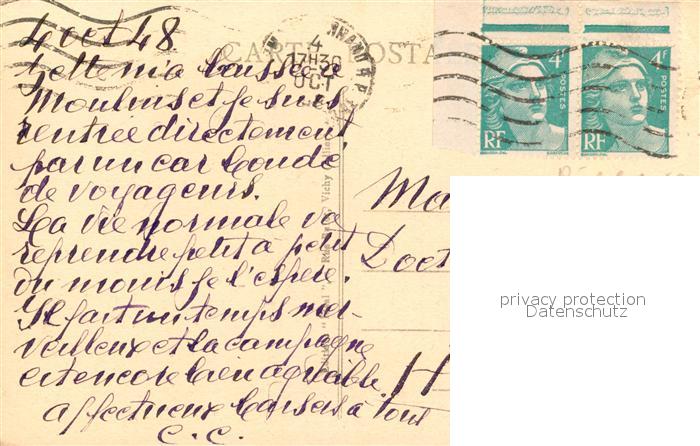 4 oct 48
CARTE POSTA
4
17H30
OCT
4F
POSTES
RF
4F
POSTES
RF
m'a laissée à
Moulins et je suis
rentrée directement
par un car bondé
de voyageurs.
La vie normale va
reprendre petit à petit
du moins je l'espère.
Il fait un temps mer-
veilleux et la campagne
est encore bien agréable.
affectueux baisers à tout
C. C.
Vichy
Doct
privacy protection
Datenschutz